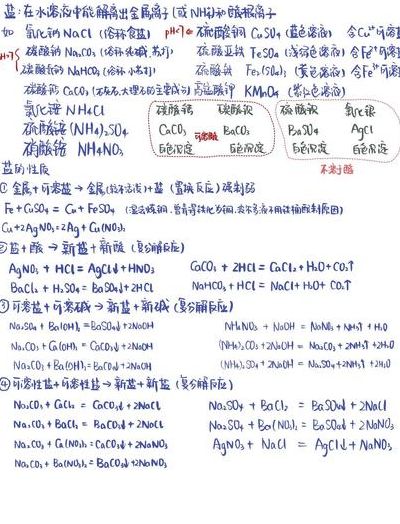 盐:在水溶液中能解离出金属离子(或NH₄⁺)和酸根离子
如 氯化钠 NaCl (俗称食盐) PH<7 硫酸铜 CuSO₄ (蓝色溶液) 含Cu²⁺
PH>7 碳酸钠 Na₂CO₃ (俗称纯碱、苏打) 硫酸亚铁 FeSO₄ (浅绿色溶液) 含Fe²⁺
碳酸氢钠 NaHCO₃ (俗称小苏打) 硫酸铁 Fe₂(SO₄)₃ (黄色溶液) 含Fe³⁺
碳酸钙 CaCO₃ 高锰酸钾 KMnO₄ (紫红色溶液)
氯化铵 NH₄Cl 碳酸钙 碳酸钡 硫酸钡 氯化银
硫酸铵 (NH₄)₂SO₄ CaCO₃ 可溶酸 BaCO₃ BaSO₄ AgCl
硝酸铵 NH₄NO₃ 白色沉淀 白色沉淀 白色沉淀 白色沉淀
盐的性质 不溶于酸
① 金属+可溶盐→金属+盐 (置换反应) 强制弱
Fe+CuSO₄ = Cu+FeSO₄
Cu+2AgNO₃=2Ag+Cu(NO₃)₂
②盐+酸→新盐+新酸 (复分解反应)
AgNO₃ + HCl = AgCl↓+HNO₃ CaCO₃ + 2HCl = CaCl₂+H₂O+CO₂↑
BaCl₂ + H₂SO₄= BaSO₄↓+2HCl NaHCO₃+HCl = NaCl+H₂O+CO₂↑
③可溶盐+可溶碱→新盐+新碱 (复分解反应)
Na₂SO₄ + Ba(OH)₂=BaSO₄↓+2NaOH NH₄NO₃ + NaOH = NaNO₃+NH₃↑+H₂O
Na₂CO₃ + Ca(OH)₂ = CaCO₃↓+2NaOH (NH₄)₂CO₃+2NaOH = Na₂CO₃+2NH₃↑+2H₂O
Na₂CO₃ + Ba(OH)₂=BaCO₃↓+2NaOH (NH₄)₂SO₄+2NaOH = Na₂SO₄+2NH₃↑+2H₂O
④可溶性盐+可溶性盐→新盐+新盐 (复分解反应)
Na₂CO₃ + CaCl₂ = CaCO₃↓+2NaCl Na₂SO₄ + BaCl₂ = BaSO₄↓+2NaCl
Na₂CO₃ + BaCl₂ = BaCO₃↓+2NaCl Na₂SO₄ + Ba(NO₃)₂ = BaSO₄↓+2NaNO₃
Na₂CO₃ + Ca(NO₃)₂=CaCO₃↓+2NaNO₃ AgNO₃ + NaCl = AgCl↓+NaNO₃
Na₂CO₃ + Ba(NO₃)₂=BaCO₃↓+2NaNO₃